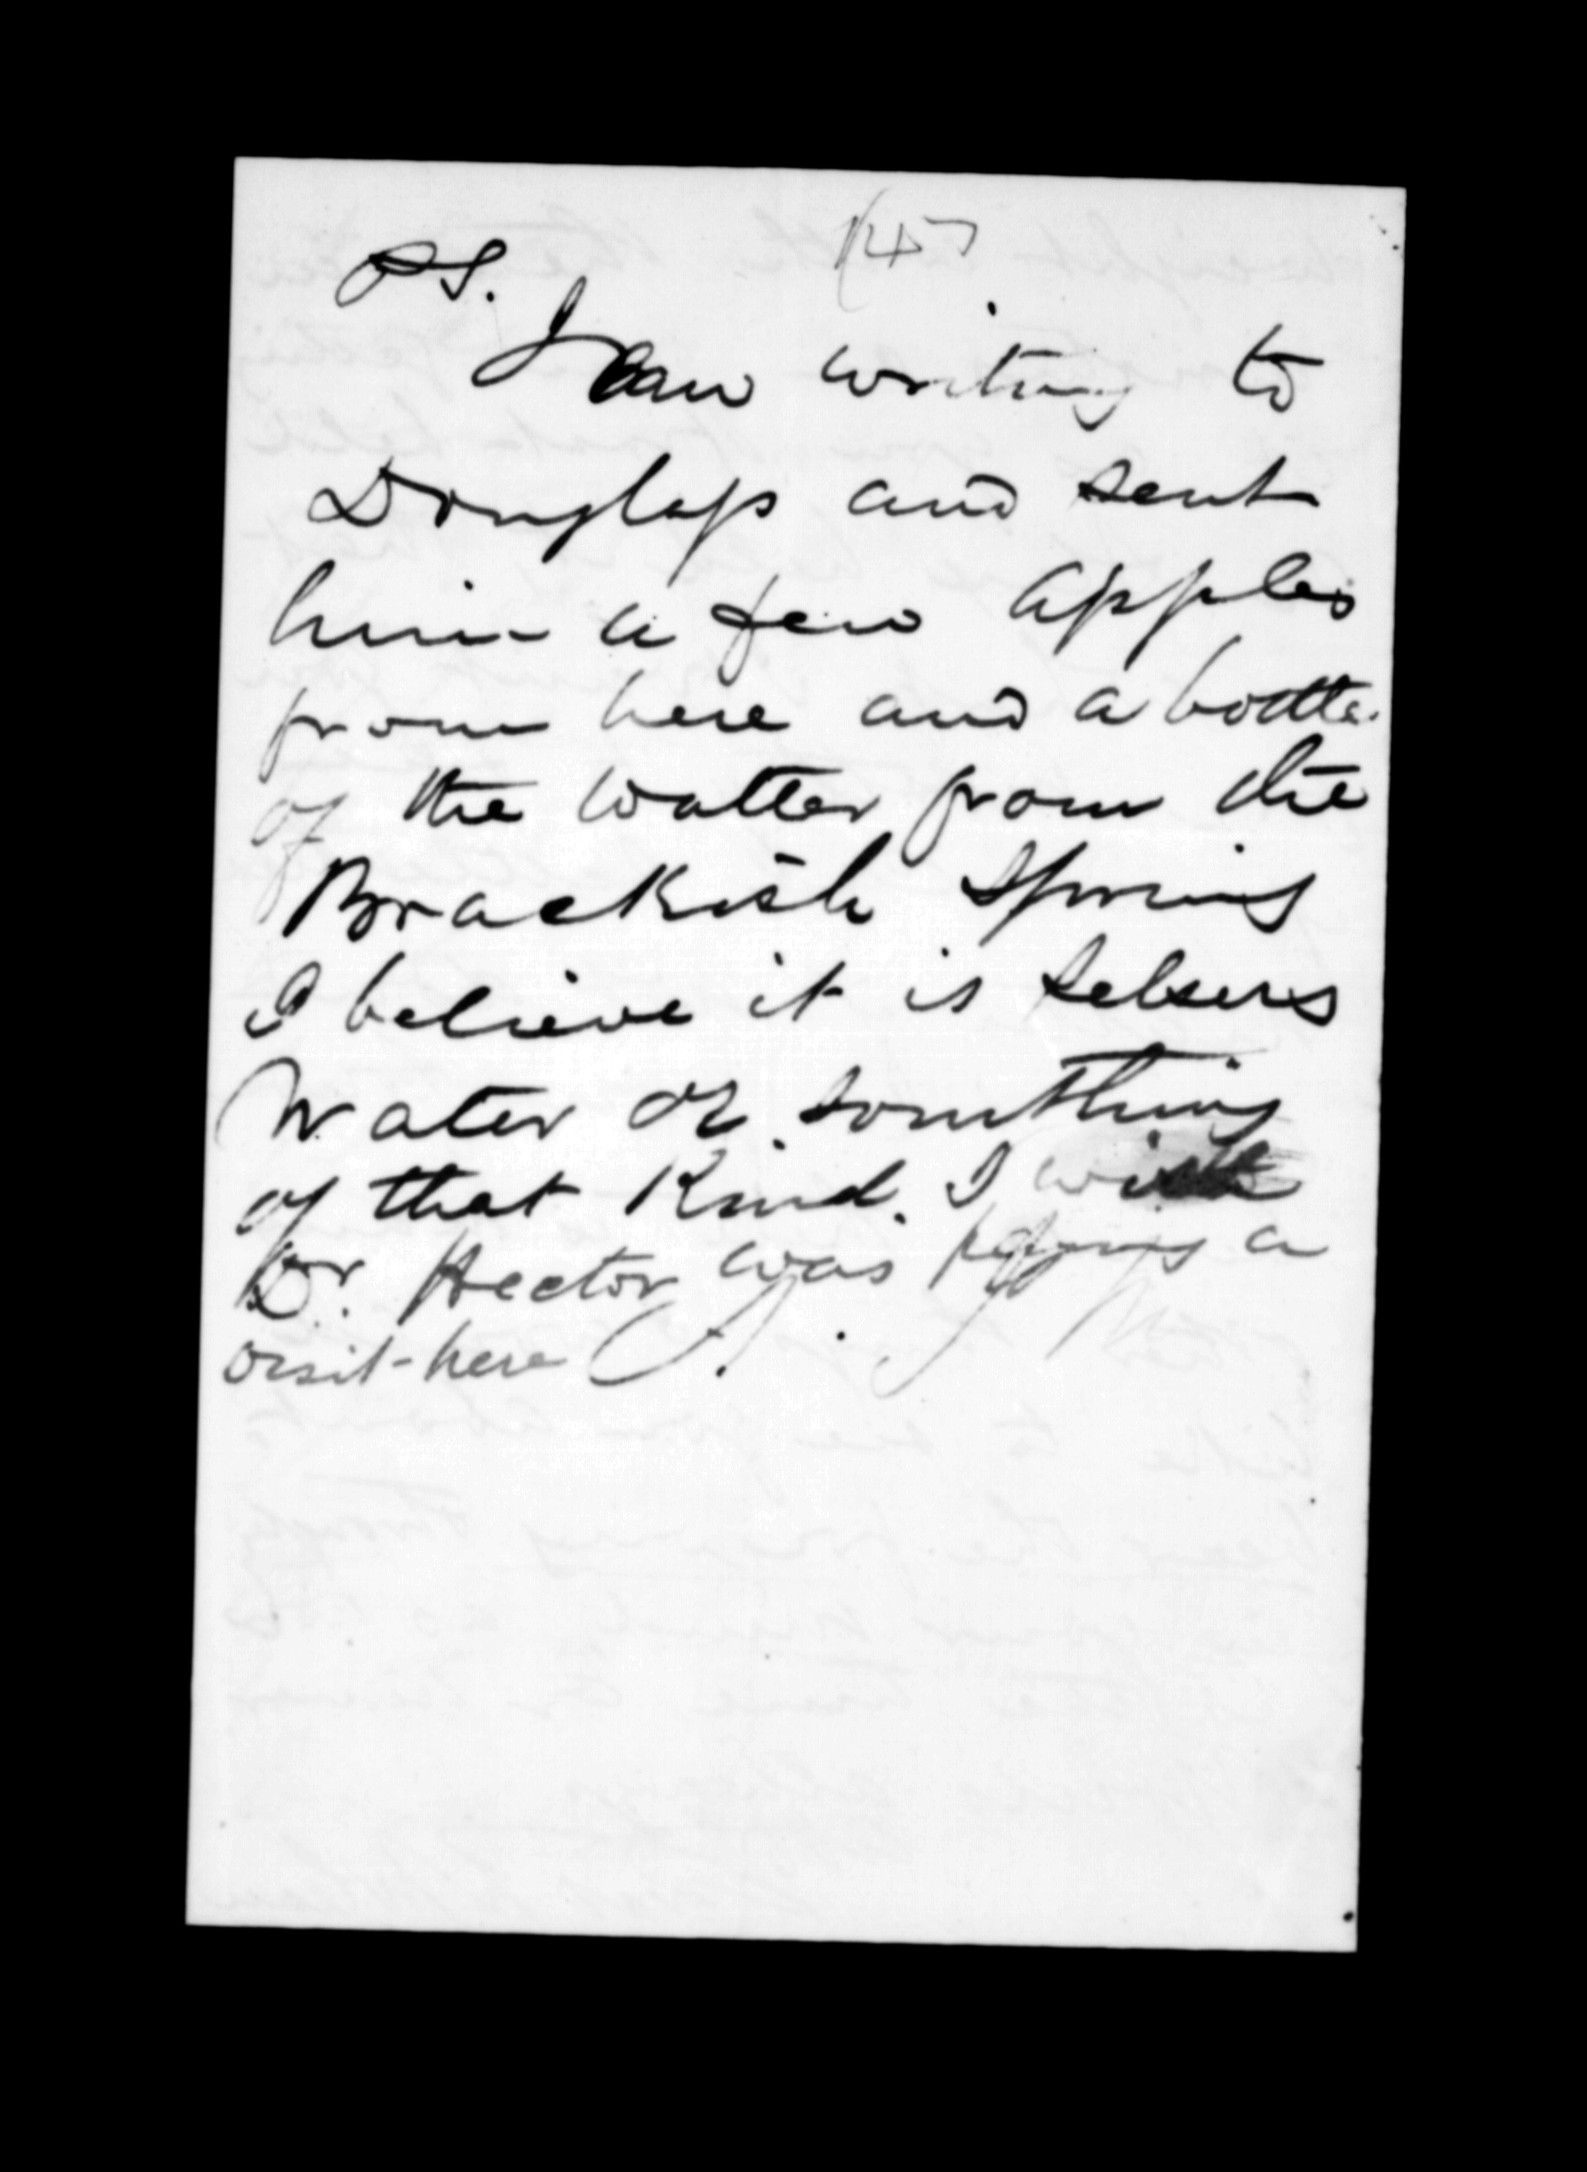 147
PS.
I am writing to
Douglass and sent
him a few apples
from here and a bottle
of the watter from the
Brackish Spring
I believe it is selsers
Water or something
of that Kind. I wish
Dr. Hector was paying a
visit here